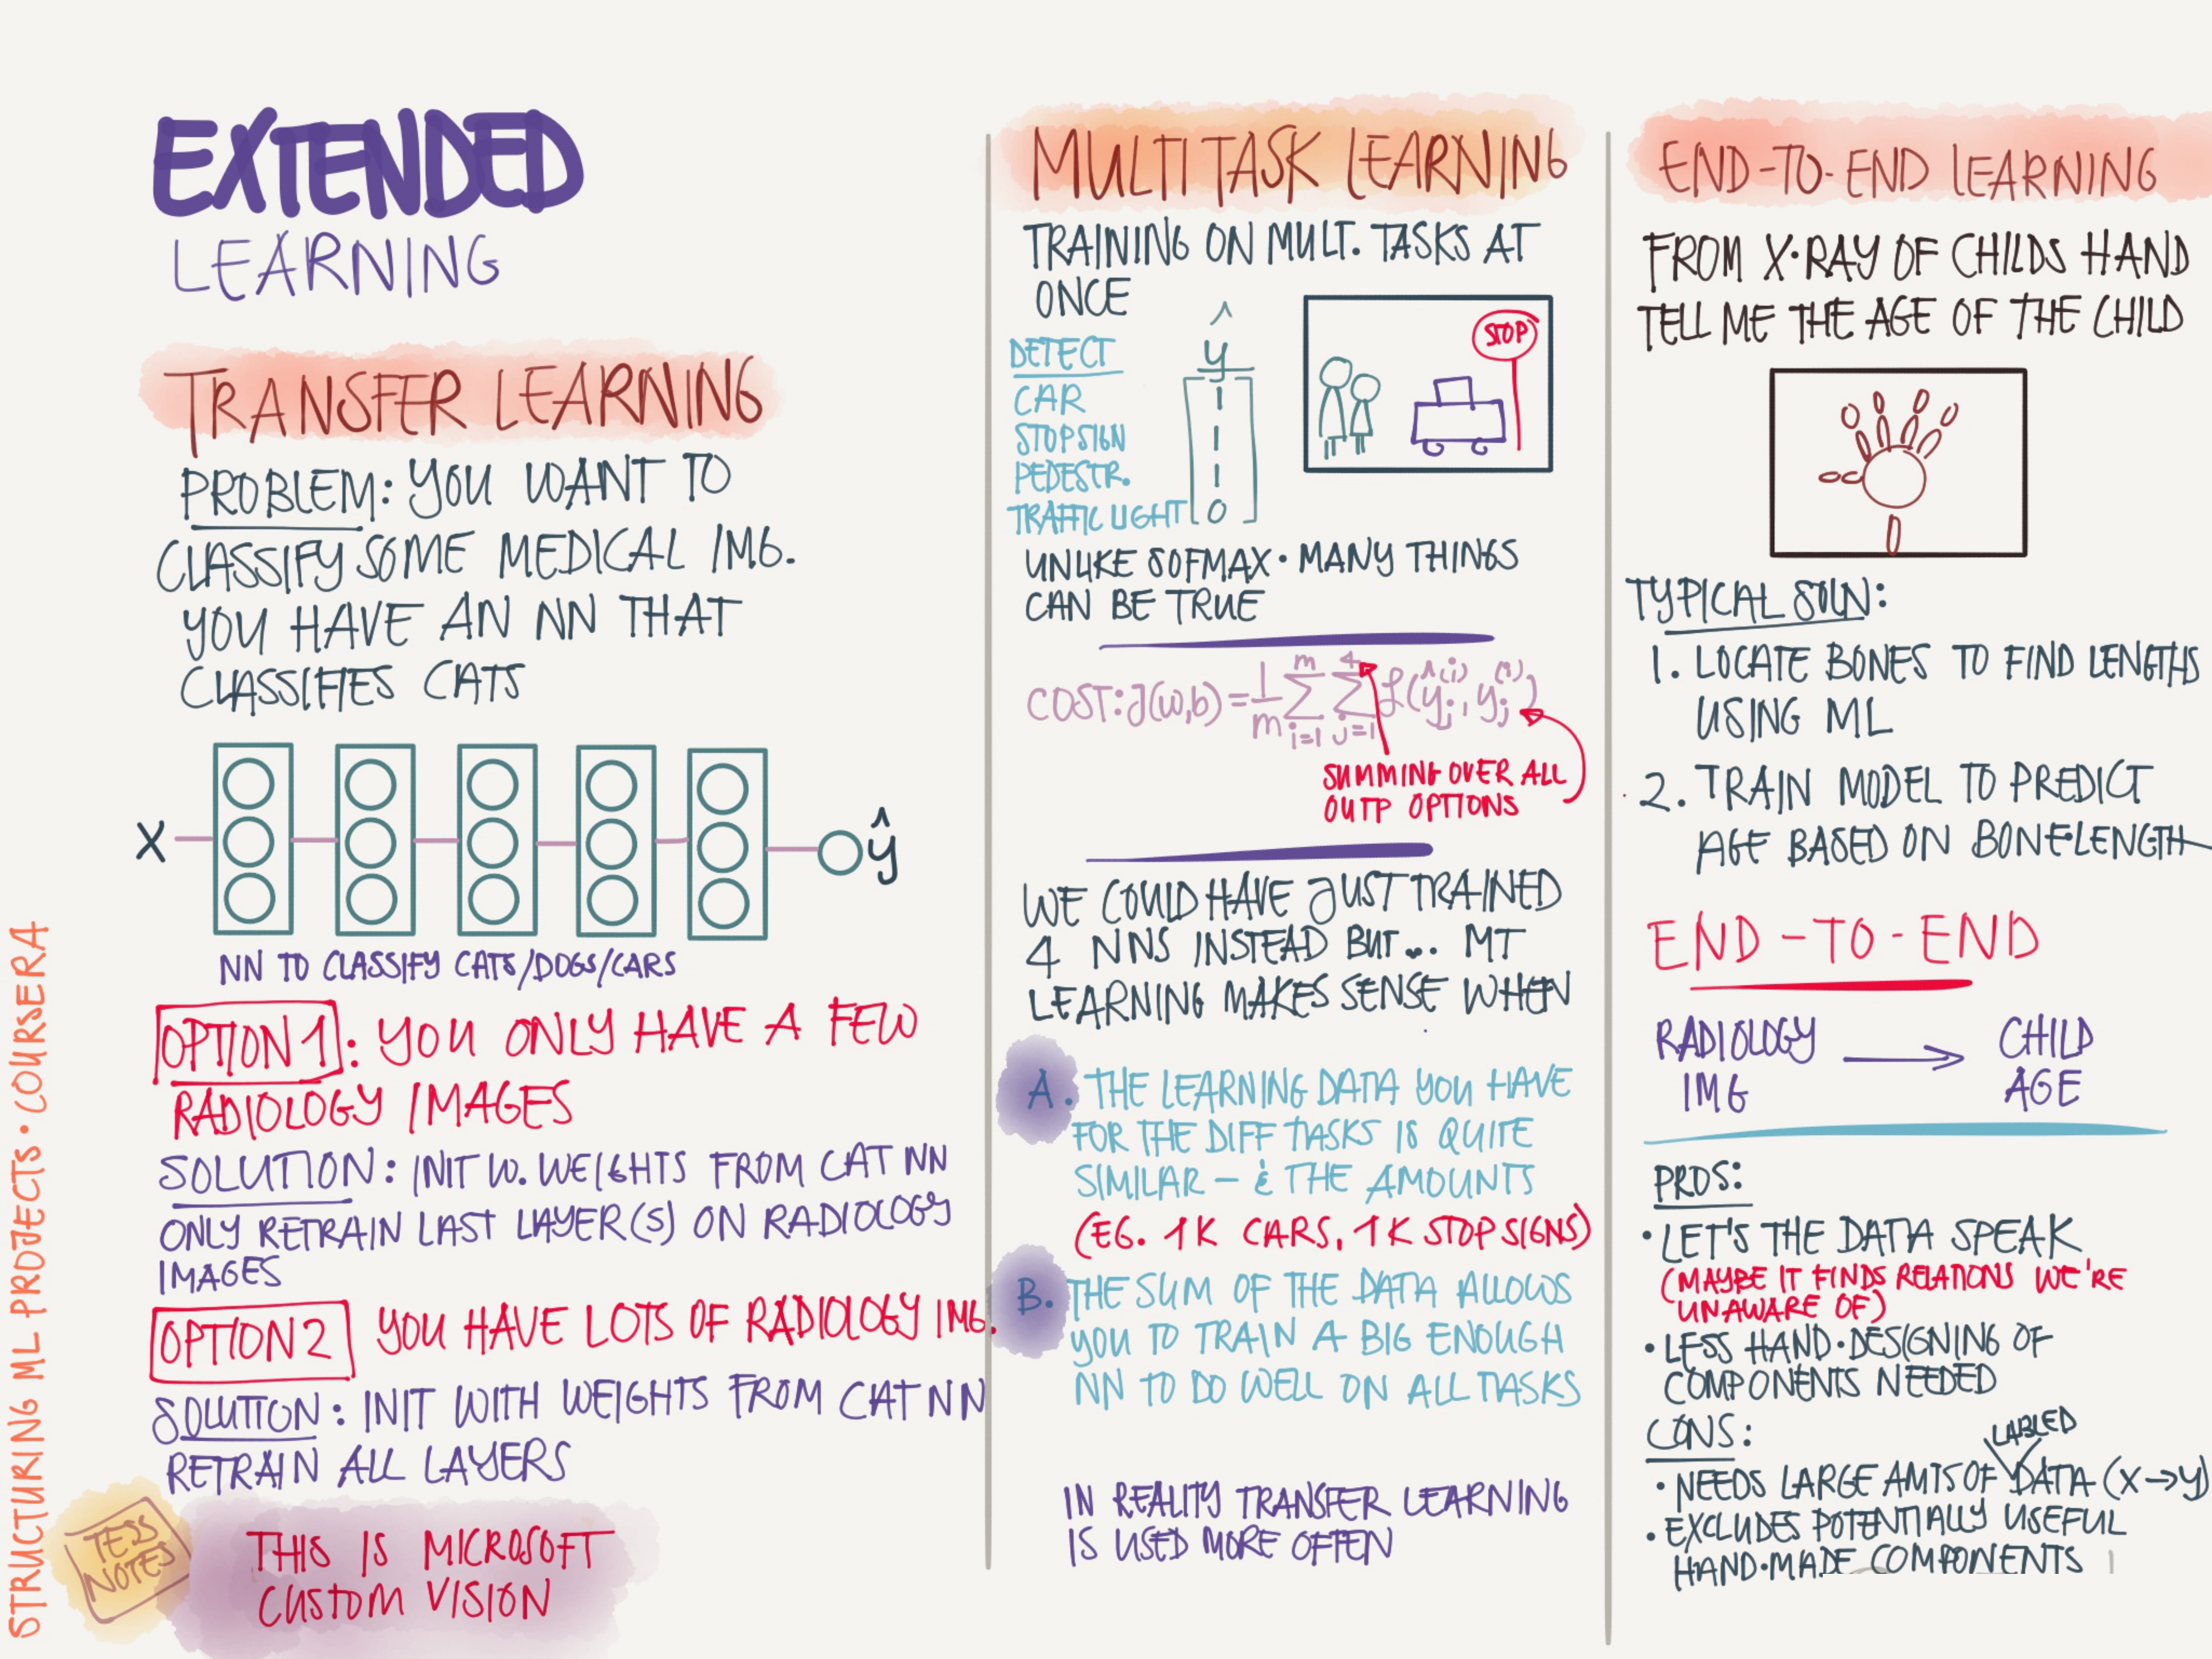 EXTENDED
LEARNING
TRANSFER LEARNING
PROBLEM: YOU WANT TO
CLASSIFY SOME MEDICAL IMG.
YOU HAVE AN NN THAT
CLASSIFIES CATS
X
ŷ
NN TO CLASSIFY CATS/DOGS/CARS
OPTION 1: YOU ONLY HAVE A FEW
RADIOLOGY IMAGES
SOLUTION: INIT W. WEIGHTS FROM CAT NN
ONLY RETRAIN LAST LAYER(S) ON RADIOLOGY
IMAGES
OPTION 2 YOU HAVE LOTS OF RADIOLOGY IMG.
SOLUTION: INIT WITH WEIGHTS FROM CAT NN
RETRAIN ALL LAYERS
THIS IS MICROSOFT
CUSTOM VISION
TESS
NOTES
STRUCTURING ML PROJECTS • COURSERA
MULTI TASK LEARNING
TRAINING ON MULT. TASKS AT
ONCE
DETECT ŷ
CAR 1
STOPSIGN 1
PEDESTR. 1
TRAFFIC LIGHT 0
STOP
UNLIKE SOFMAX • MANY THINGS
CAN BE TRUE
COST: J(w,b) = 1/m Σ_{i=1}^{m} Σ_{j=1}^{4} ℒ(ŷ_j^{(i)}, y_j^{(i)})
SUMMING OVER ALL
OUTP OPTIONS
WE COULD HAVE JUST TRAINED
4 NNS INSTEAD BUT... MT
LEARNING MAKES SENSE WHEN
A. THE LEARNING DATA YOU HAVE
FOR THE DIFF TASKS IS QUITE
SIMILAR - & THE AMOUNTS
(EG. 1K CARS, 1K STOPSIGNS)
B. THE SUM OF THE DATA ALLOWS
YOU TO TRAIN A BIG ENOUGH
NN TO DO WELL ON ALL TASKS
IN REALITY TRANSFER LEARNING
IS USED MORE OFTEN
END-TO-END LEARNING
FROM X•RAY OF CHILDS HAND
TELL ME THE AGE OF THE CHILD
TYPICAL SOLN:
1. LOCATE BONES TO FIND LENGTHS
USING ML
2. TRAIN MODEL TO PREDICT
AGE BASED ON BONE•LENGTH
END-TO-END
RADIOLOGY → CHILD
IMG AGE
PROS:
• LET'S THE DATA SPEAK
(MAYBE IT FINDS RELATIONS WE'RE
UNAWARE OF)
• LESS HAND•DESIGNING OF
COMPONENTS NEEDED
CONS:
LABLED
• NEEDS LARGE AMTS OF DATA (X→Y)
• EXCLUDES POTENTIALLY USEFUL
HAND•MADE COMPONENTS